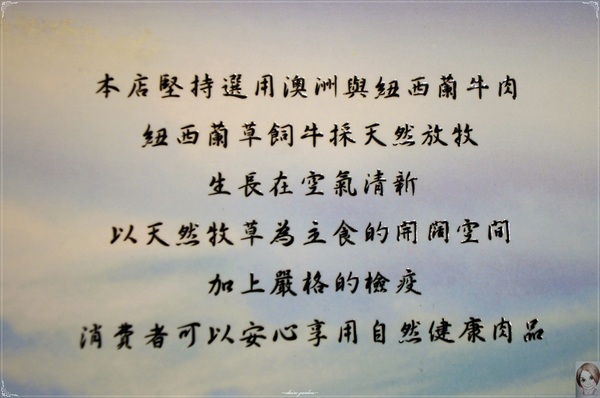 本店堅持選用澳洲與紐西蘭牛肉
紐西蘭草飼牛採天然放牧
生長在空氣清新
以天然牧草為主食的開闊空間
加上嚴格的檢疫
消費者可以安心享用自然健康肉品